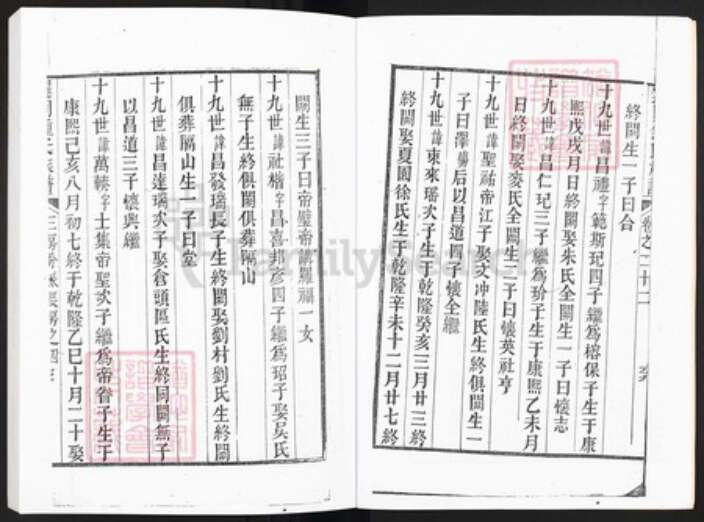 終闕生一子曰合
十九世諱昌禮字範斯玘四子繼為榕保子生于康
熙戊戌月日終闕娶朱氏全闕生一子曰懷志
十九世諱昌仁玘三子繼為玠子生于康熙乙未月
日終闕娶麥氏全闕生二子曰懷英社亨
十九世諱聖祐帝江子娶文冲陸氏生終俱闕生一
子曰澤 后以昌道四子懷全繼
十九世諱東來璠次子生于乾隆癸亥三月廿三終
終闕娶夏園徐氏生于乾隆辛未十二月廿七終
卷之二十二
闕生三子曰帝璧帝 羅福一女
十九世諱社楷字昌喜邦彥四子繼為玿子娶吳氏
無子生終俱闕俱葬隔山
十九世諱昌發瑀長子生終闕娶劉村劉氏生終闕
俱葬隔山生一子曰棠
十九世諱昌達瑀次子娶倉頭區氏生終同闕無子
以昌道三子懷興繼
十九世諱萬 字士集帝聖次子繼為帝眷子生于
康熙己亥八月初七終于乾隆乙巳十月二十娶
FamilySearch